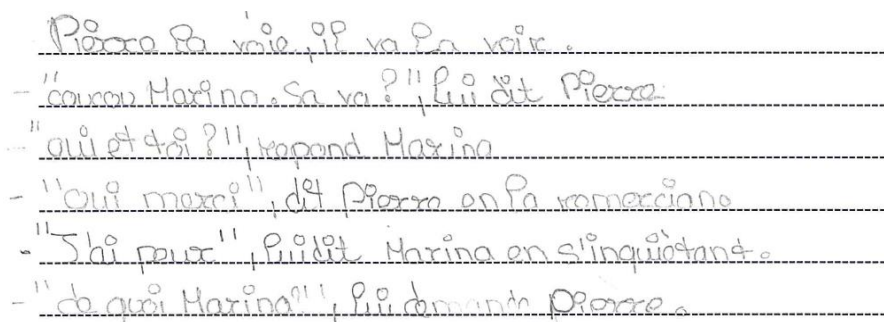 Pierre la voie, il va la voir.
- "coucou Marina. Sa va ?", lui dit Pierre.
- "oui et toi ?", repond Marina
- "oui merci", dit Pierre en la remerciane
- "J'ai peur", lui dit Marina en s'inquiètant.
- "de quoi Marina?", lui demande Pierre.